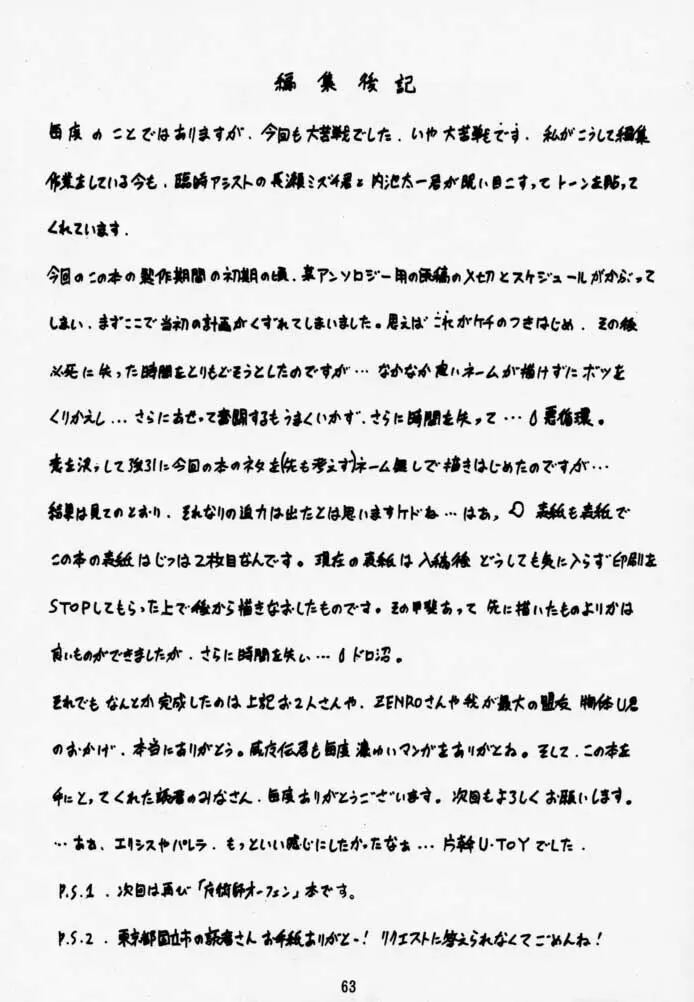 編集後記
毎度のことではありますが、今回も大苦戦でした。いや大苦戦もです。私がこうして編集
作業をしている今も、臨時アシストの長瀬ミズチ君と内池太一君が眠い目こすってトーンを貼って
くれています。
今回のこの本の製作期間の初期の頃、某アンソロジー用の原稿の〆切とスケジュールがかぶって
しまい、まずここで当初の計画がくずれてしまいました。思えばこれがケチのつきはじめ、その後
必死に失った時間をとりもどそうとしたのですが…なかなか良いネームが描けずにボツを
くりかえし…さらにあせって奮闘するもうまくいかず、さらに時間を失って…悪循環。
意を決っして強引に今回の本のネタを(先も考えず)ネーム無しで描きはじめたのですが…
結果は見てのとおり、それなりの迫力は出たとは思いますケドね…はあ。表紙も表紙で
この本の表紙はじつは2枚目なんです。現在の表紙は入稿後どうしても気に入らず印刷を
STOPしてもらった上で後から描きなおしたものです。その甲斐あって先に描いたものよりかは
良いものができましたが、さらに時間を失い…ドロ沼。
それでもなんとか完成したのは上記お2人さんや、ZENROさんや我が最大の盟友 物体U君
のおかげ、本当にありがとう。威夜伝君も毎度濃ゆいマンガをありがとね。そして、この本を
手にとってくれた読者のみなさん、毎度ありがとうございます。次回もよろしくお願いします。
…ああ、エリシスやパレラ、もっといい感じにしたかったなぁ…片幹U・TOYでした。
P.S.1. 次回は再び「魔術師オーフェン」本です。
P.S.2. 東京都国立市の読者さんお手紙ありがとー!リクエストに答えられなくてごめんね!
63